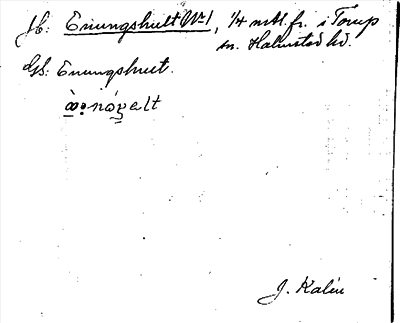 Jb: Enungshult No 1, 1/4 mtl. fr. i Torup
sn. Halmstad hd.
GS: Enungshut.
J. Kalén